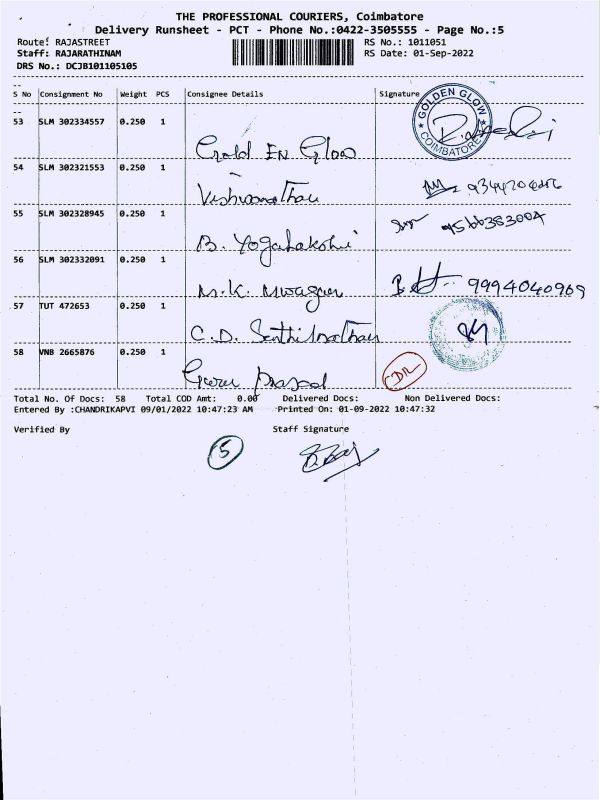 THE PROFESSIONAL COURIERS, Coimbatore
Delivery Runsheet - PCT - Phone No.:0422-3505555 - Page No.:5
Route: RAJASTREET
Staff: RAJARATHINAM
DRS No.: DCJB101105105
RS No.: 1011051
RS Date: 01-Sep-2022
S No Consignment No Weight PCS Consignee Details Signature
53 SLM 302334557 0.250 1
Gold EN Glow
GOLDEN GLOW COIMBATORE
54 SLM 302321553 0.250 1
Vishwanathan
55 SLM 302328945 0.250 1
B. Yogalakshmi
9566383004
56 SLM 302332091 0.250 1
M.K.
9994040969
57 TUT 472653 0.250 1
C.D. Senthilnathan
58 VNB 2665876 0.250 1
Guru Prasad
Total No. Of Docs: 58 Total COD Amt: 0.00 Delivered Docs: Non Delivered Docs:
Entered By :CHANDRIKAPVI 09/01/2022 10:47:23 AM Printed On: 01-09-2022 10:47:32
Verified By Staff Signature
5